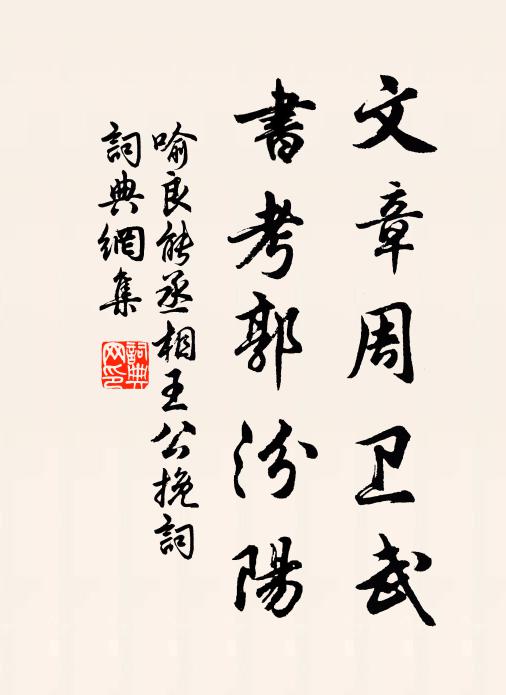 文章周卫武
書考郭汾陽
喻良能丞相王公挽詞
詞典網集
詞典网印